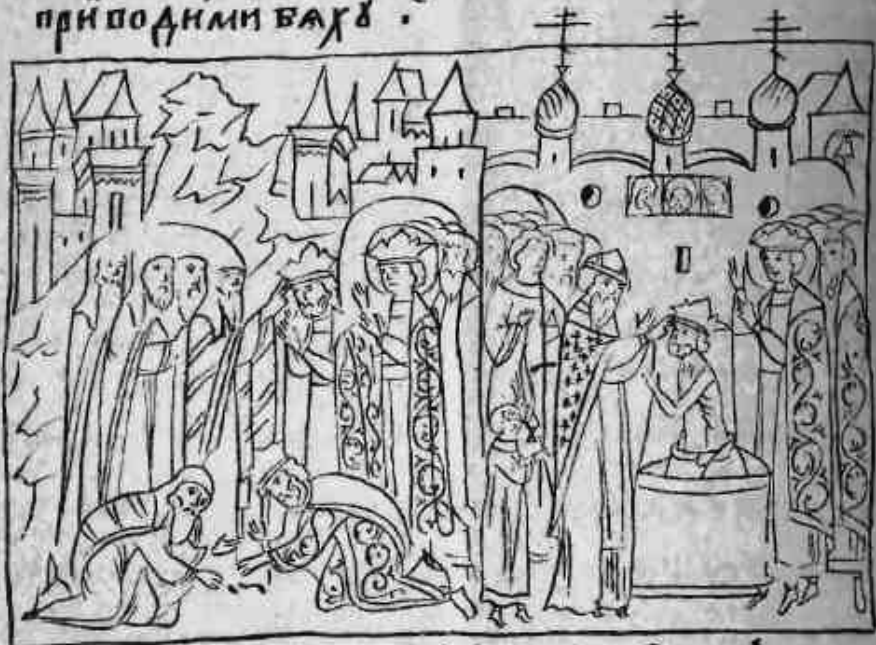 приводими бѧхꙋ ·